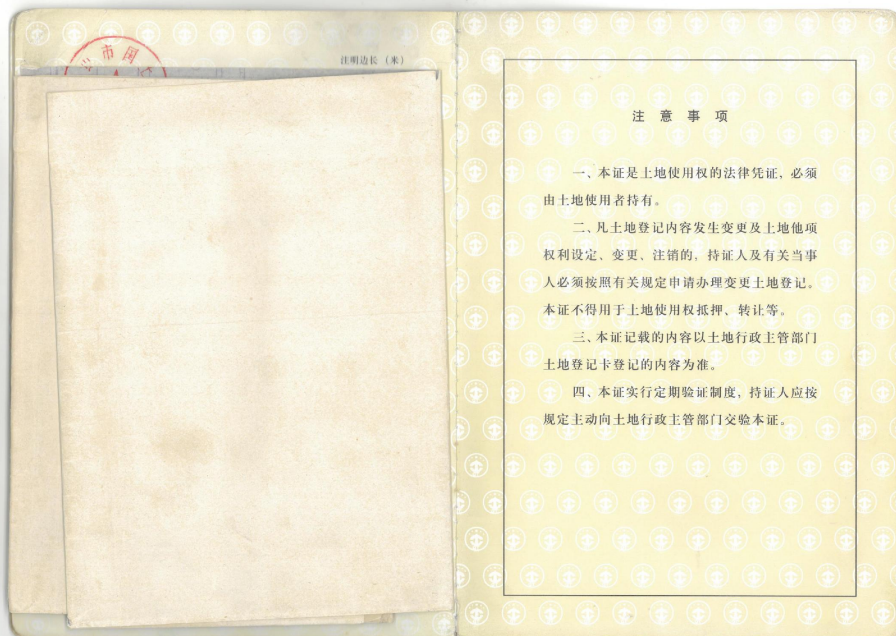 市国
注明边长（米）
注意事项
一、本证是土地使用权的法律凭证，必须
由土地使用者持有。
二、凡土地登记内容发生变更及土地他项
权利设定、变更、注销的，持证人及有关当事
人必须按照有关规定申请办理变更土地登记。
本证不得用于土地使用权抵押、转让等。
三、本证记载的内容以土地行政主管部门
土地登记卡登记的内容为准。
四、本证实行定期验证制度，持证人应按
规定主动向土地行政主管部门交验本证。